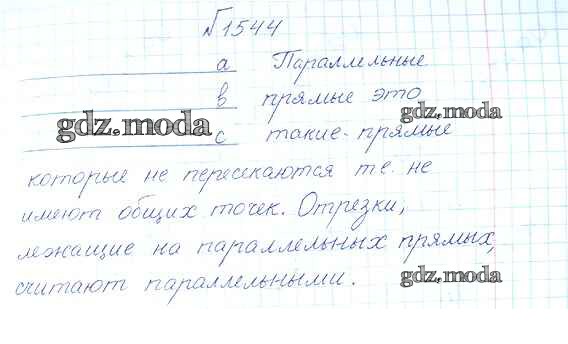 №1544
a Параллельные
b прямые это
gdz.moda
gdz.moda
c такие прямые
которые не пересекаются те. не
имеют общих точек. Отрезки,
лежащие на параллельных прямых,
считают параллельными.
gdz.moda